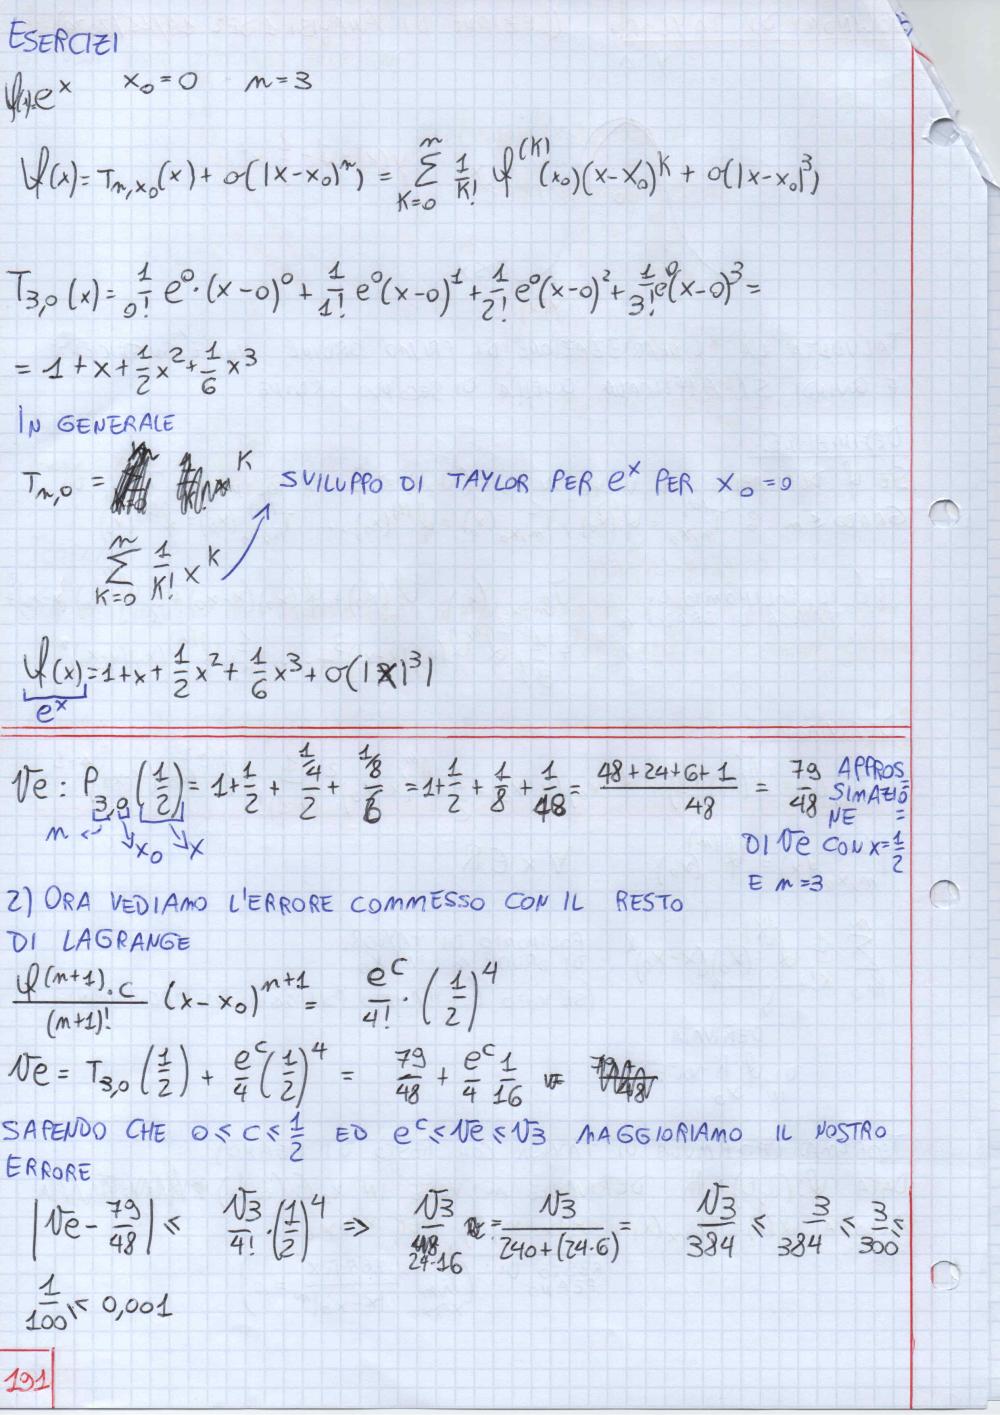 ESERCIZI
f(x)=e^x x₀=0 n=3
f(x)=T_{n,x₀}(x)+σ(|x-x₀|^n) = ∑_{K=0}^{n} 1/K! f^{(K)}(x₀)(x-x₀)^K + σ(|x-x₀|^3)
T_{3,0}(x)= 1/0! e^0·(x-0)^0 + 1/1! e^0(x-0)^1 + 1/2! e^0(x-0)^2 + 1/3! e^0(x-0)^3 =
= 1+x+1/2 x^2+1/6 x^3
IN GENERALE
T_{n,0} = SVILUPPO DI TAYLOR PER e^x PER x₀=0
∑_{K=0}^{n} 1/K! x^K
f(x)=1+x+1/2 x^2+1/6 x^3+σ(|x|^3)
e^x
√e: P_{3,0}(1/2)=1+1/2+(1/4)/2+(1/8)/6=1+1/2+1/8+1/48=(48+24+6+1)/48=79/48 APPROSSIMAZIO=
NE
n x₀ x DI √e CON x=1/2
E n=3
2) ORA VEDIAMO L'ERRORE COMMESSO CON IL RESTO
DI LAGRANGE
f^{(n+1)}·c/(n+1)! (x-x₀)^{n+1} = e^c/4!·(1/2)^4
√e = T_{3,0}(1/2) + e^c/4(1/2)^4 = 79/48 + e^c/4 1/16 =
SAPENDO CHE 0≤C≤1/2 ED e^c≤√e≤√3 MAGGIORIAMO IL NOSTRO
ERRORE
|√e-79/48| ≤ √3/4!·(1/2)^4 => √3/24·16 = √3/(240+(24·6)) = √3/384 ≤ 3/384 ≤ 3/300 ≤
1/100 ≤ 0,001
191